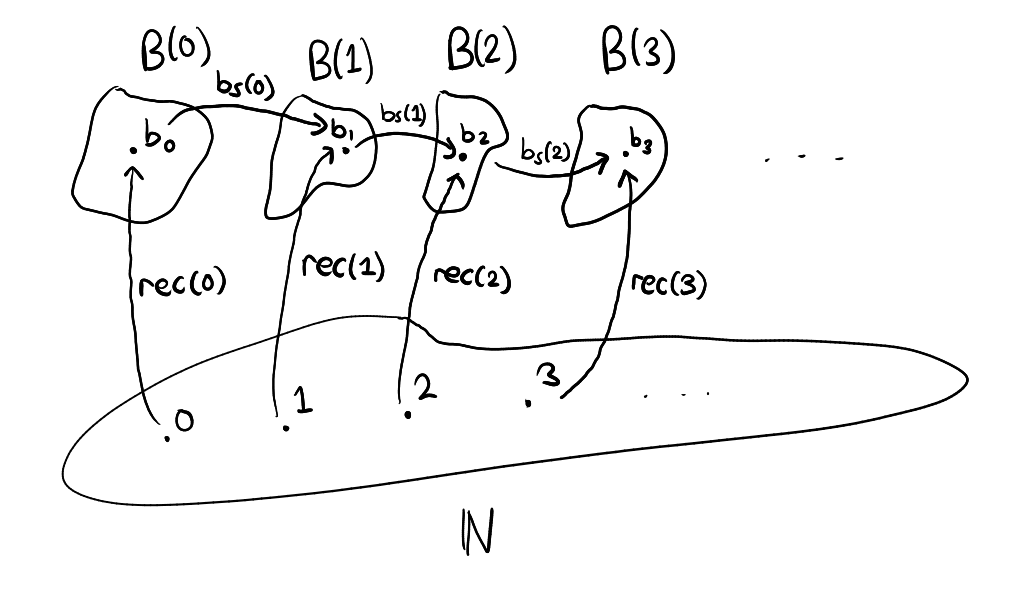 B(0) B(1) B(2) B(3)
bs(0) bs(1) bs(2)
b₀ b₁ b₂ b₃ . . .
rec(0) rec(1) rec(2) rec(3)
.0 .1 .2 .3 . . .
ℕ